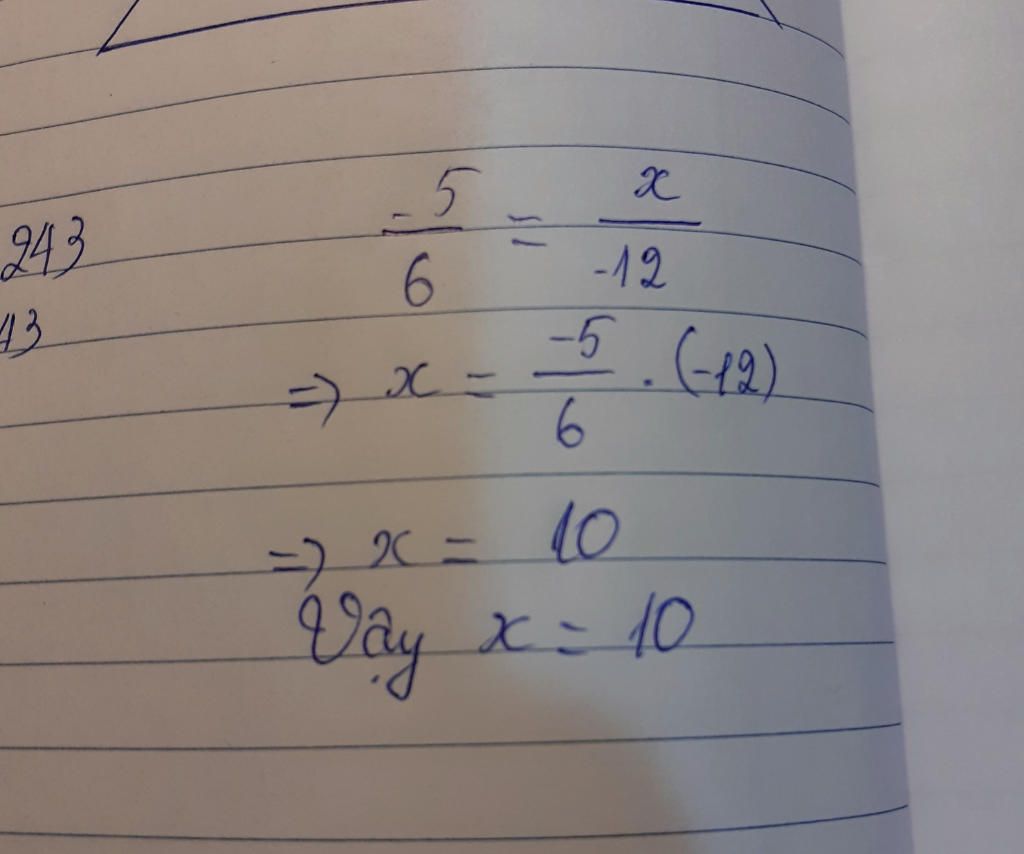 243
43
-5/6 = x/-12
=> x = -5/6 . (-12)
=> x = 10
Vậy x = 10